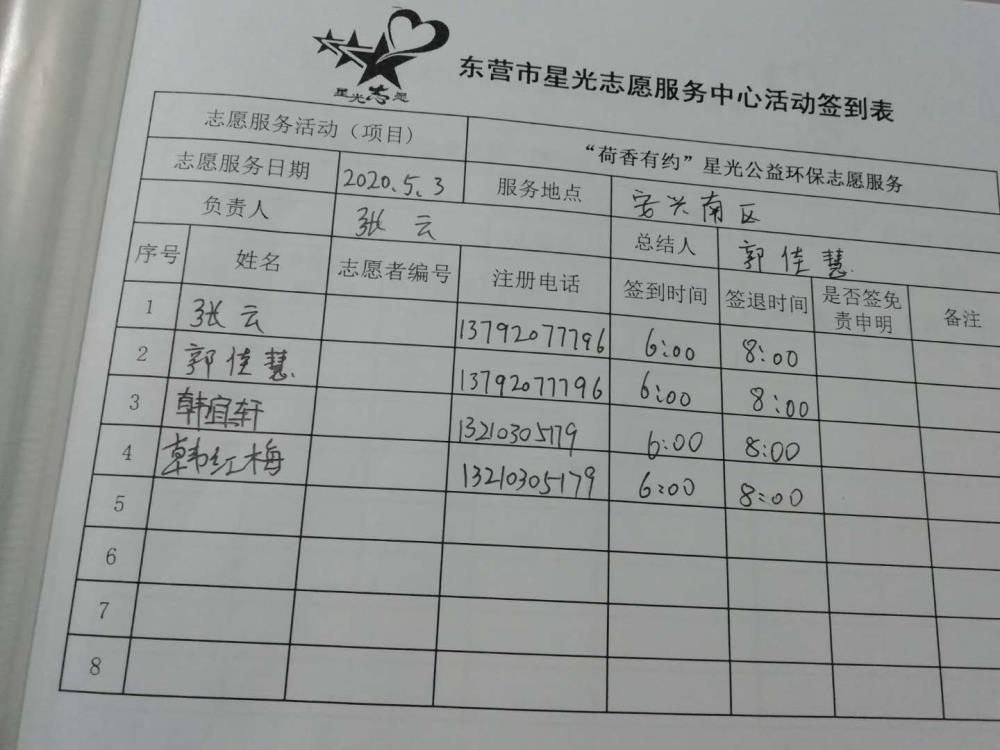 星光志愿
东营市星光志愿服务中心活动签到表
志愿服务活动（项目） “荷香有约”星光公益环保志愿服务
志愿服务日期 2020.5.3 服务地点 安兴南区
负责人 张云 总结人 郭佳慧
序号 姓名 志愿者编号 注册电话 签到时间 签退时间 是否签免责申明 备注
1 张云 13792077796 6:00 8:00
2 郭佳慧 13792077796 6:00 8:00
3 韩宜轩 13210305179 6:00 8:00
4 韩红梅 13210305179 6:00 8:00
5
6
7
8